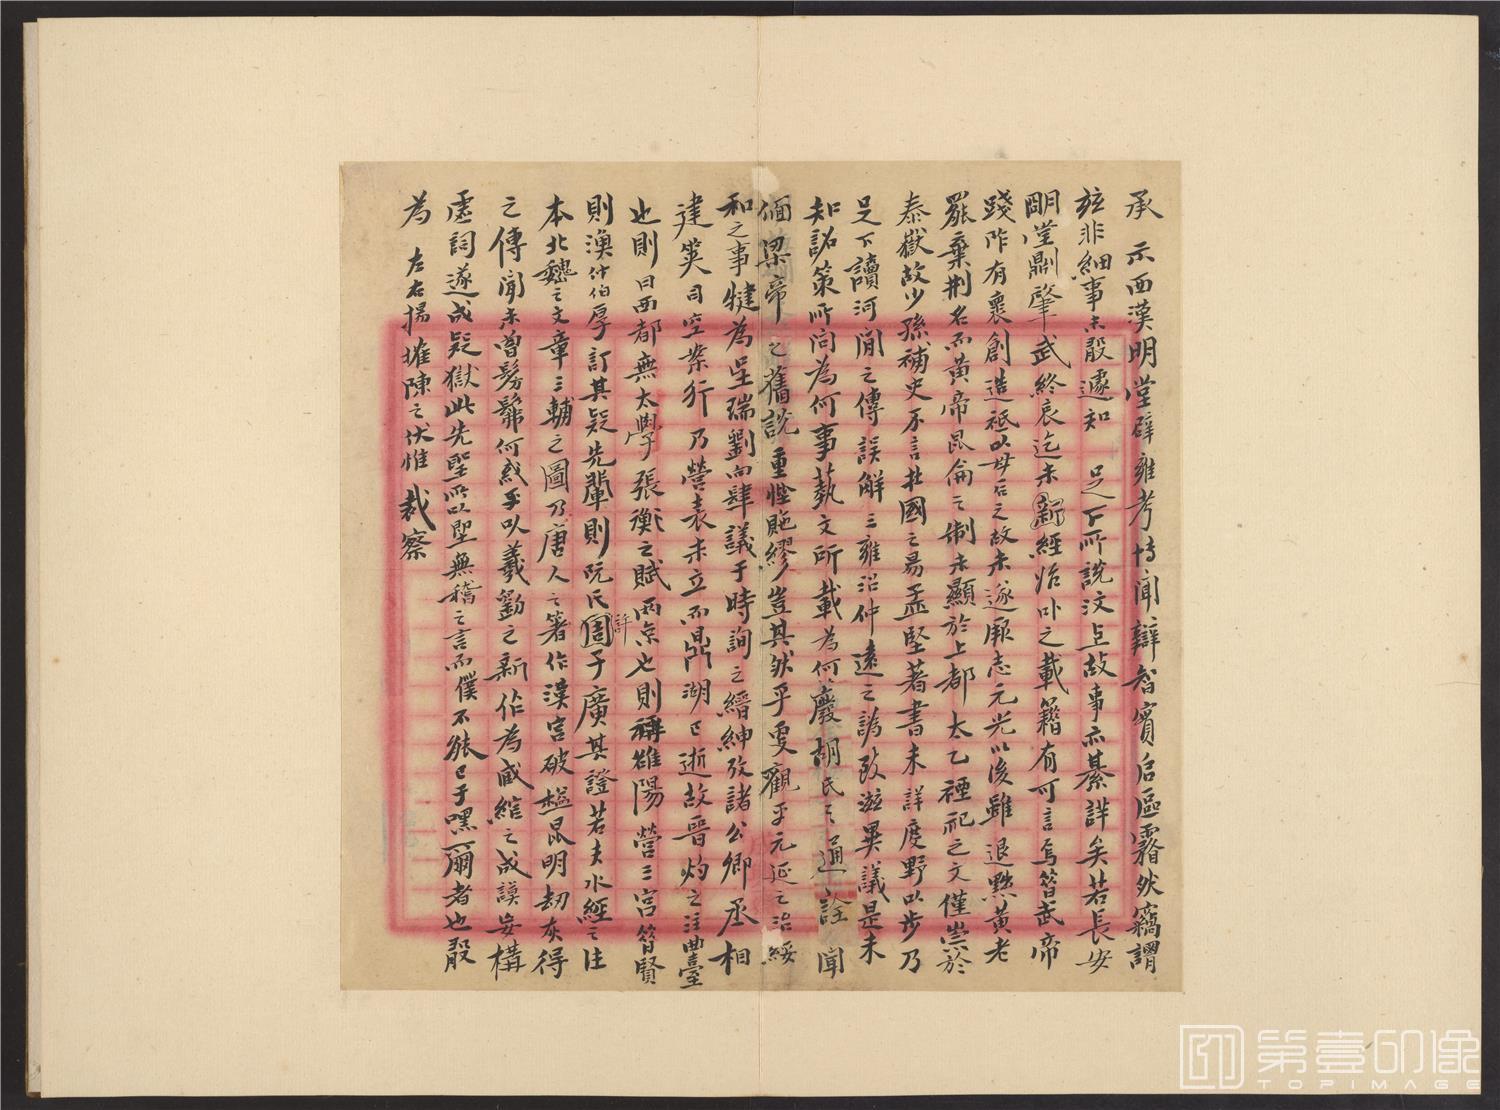 承示西漢明堂辟雍考博聞辯智賓后區霿然竊謂
玆非細事未殷遽知 足下所說汶上故事亦綦詳矣若長安
明堂剏肇武終哀迄未新經始卟之載籍有可言焉昝武帝
踐阼有褱創造祇以毋后之故未遂厥志元光以後雖退黜黃老
罷棄荆名而黃帝昆侖之制未顯於上都太乙禋祀之文僅崇於
泰嶽故少孫補史不言杜國之昜孟堅著書未詳度野以步乃
足下讀河閒之傳誤解三雍沿仲遠之譌致滋異議是未
知詔策所問為何事蓺文所載為何 胡氏之通詮聞
偭梁帝之舊說重悂貤繆豈其然乎夐觀乎元延之治綏
和之事犍為呈瑞劉向肆議于時詢之縉紳攷諸公卿丞相
建筴司空桉行乃營表未立而鼎湖已逝故晉灼之注曲臺
也則曰西都無太學張衡之賦兩京也則稱雒陽營三宮昝賢
則漁仲伯厚訂其疑先輩則阮氏周許子廣其證若夫水經之注
本北魏之文章三輔之圖乃唐人之箸作漢宮破榲昆明劫灰得
之傳聞未曾髣髴何或乎以羲勤之新作為咸綰之成謨妄構
虛詞遂成疑獄此先聖所以堲無稽之言而僕不能已于嘿爾者也殷
為 左右揚搉陳之伏惟 裁察
第壹印像
TOPIMAGE